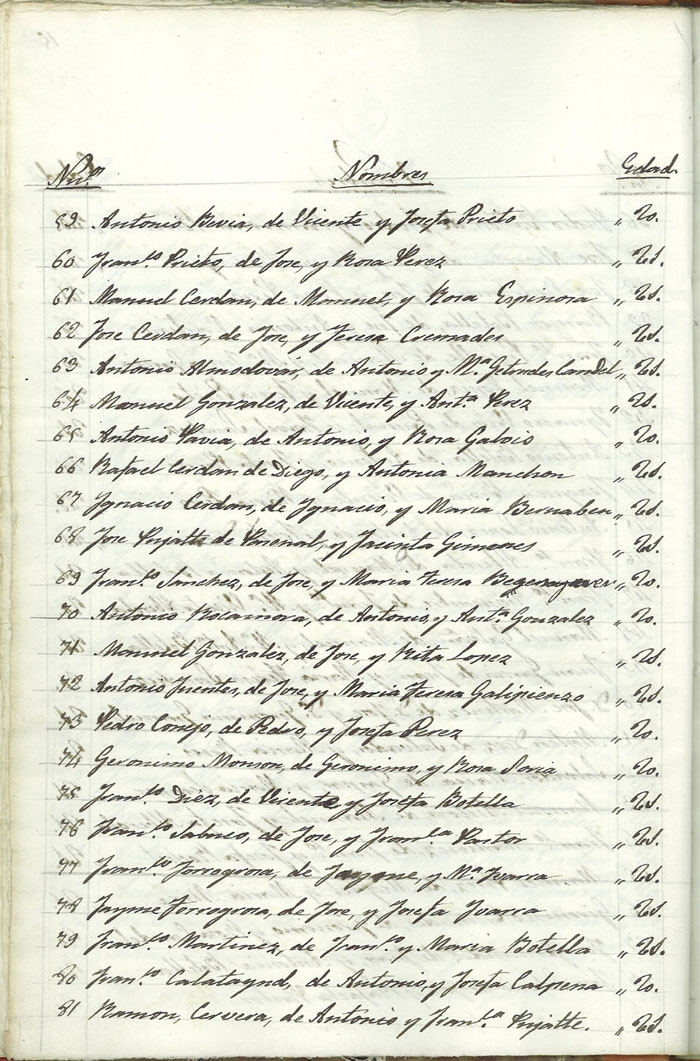 Nu.º Nombres Edad.
59 Antonio Bevia, de Vicente y Josefa Prieto „ Yo.
60 Fran.co Prieto, de Jose, y Rosa Perez „ Yd.
61 Manuel Cerdan, de Manuel, y Rosa Espinosa „ Yd.
62 Jose Cerdan, de Jose, y Teresa Cremades „ Yd.
63 Antonio Almodovar, de Antonio y M.ª Getrudes Candel „ Yd.
64 Manuel Gonzalez, de Vicente, y Ant.ª Perez „ Yd.
65 Antonio Pavia, de Antonio, y Rosa Galvis „ Yo.
66 Rafael Cerdan de Diego, y Antonia Manchon „ Yd.
67 Ygnacio Cerdan, de Ygnacio, y Maria Bernabeu „ Yd.
68 Jose Pujalte de Pasqual, y Jacinta Gimenes „ Yd.
69 Fran.co Sanchez, de Jose, y Maria Teresa „ Yo.
70 Antonio Rocamora, de Antonio, y Ant.ª Gonzalez „ Yo.
71 Manuel Gonzalez, de Jose, y Rita Lopez „ Yd.
72 Antonio Fuentes, de Jose, y Maria Teresa Galipienzo „ Yd.
73 Pedro Conejo, de Pedro, y Josefa Perez „ Yo.
74 Geronimo Monson, de Geronimo, y Rosa Soria „ Yo.
75 Fran.co Diez, de Vicente y Josefa Botella „ Yd.
76 Fran.co Sabuco, de Jose, y Fran.ca Pastor „ Yd.
77 Fran.co Torregrosa, de Jayme, y M.ª Yvarra „ Yd.
78 Jayme Torregrosa, de Jose, y Josefa Yvarra „ Yd.
79 Fran.co Martinez, de Fran.co y Maria Botella „ Yd.
80 Fran.co Calatayud, de Antonio, y Josefa Calpena „ Yo.
81 Ramon, Cervera, de Antonio y Fran.ca Pujalte. „ Yd.